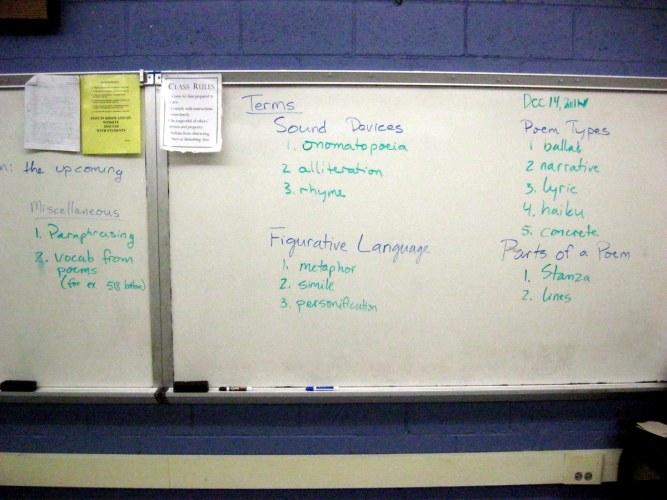 CLASS RULES
n: the upcoming
Miscellaneous
1. Paraphrasing
2. vocab from
poems
(for ex 518 before)
Terms
Sound Devices
1. onomatopoeia
2 alliteration
3. rhyme
Figurative Language
1. metaphor
2. simile
3. personification
Dec 14,
Poem Types
1 ballad
2 narrative
3. lyric
4. haiku
5. concrete
Parts of a Poem
1. Stanza
2. lines